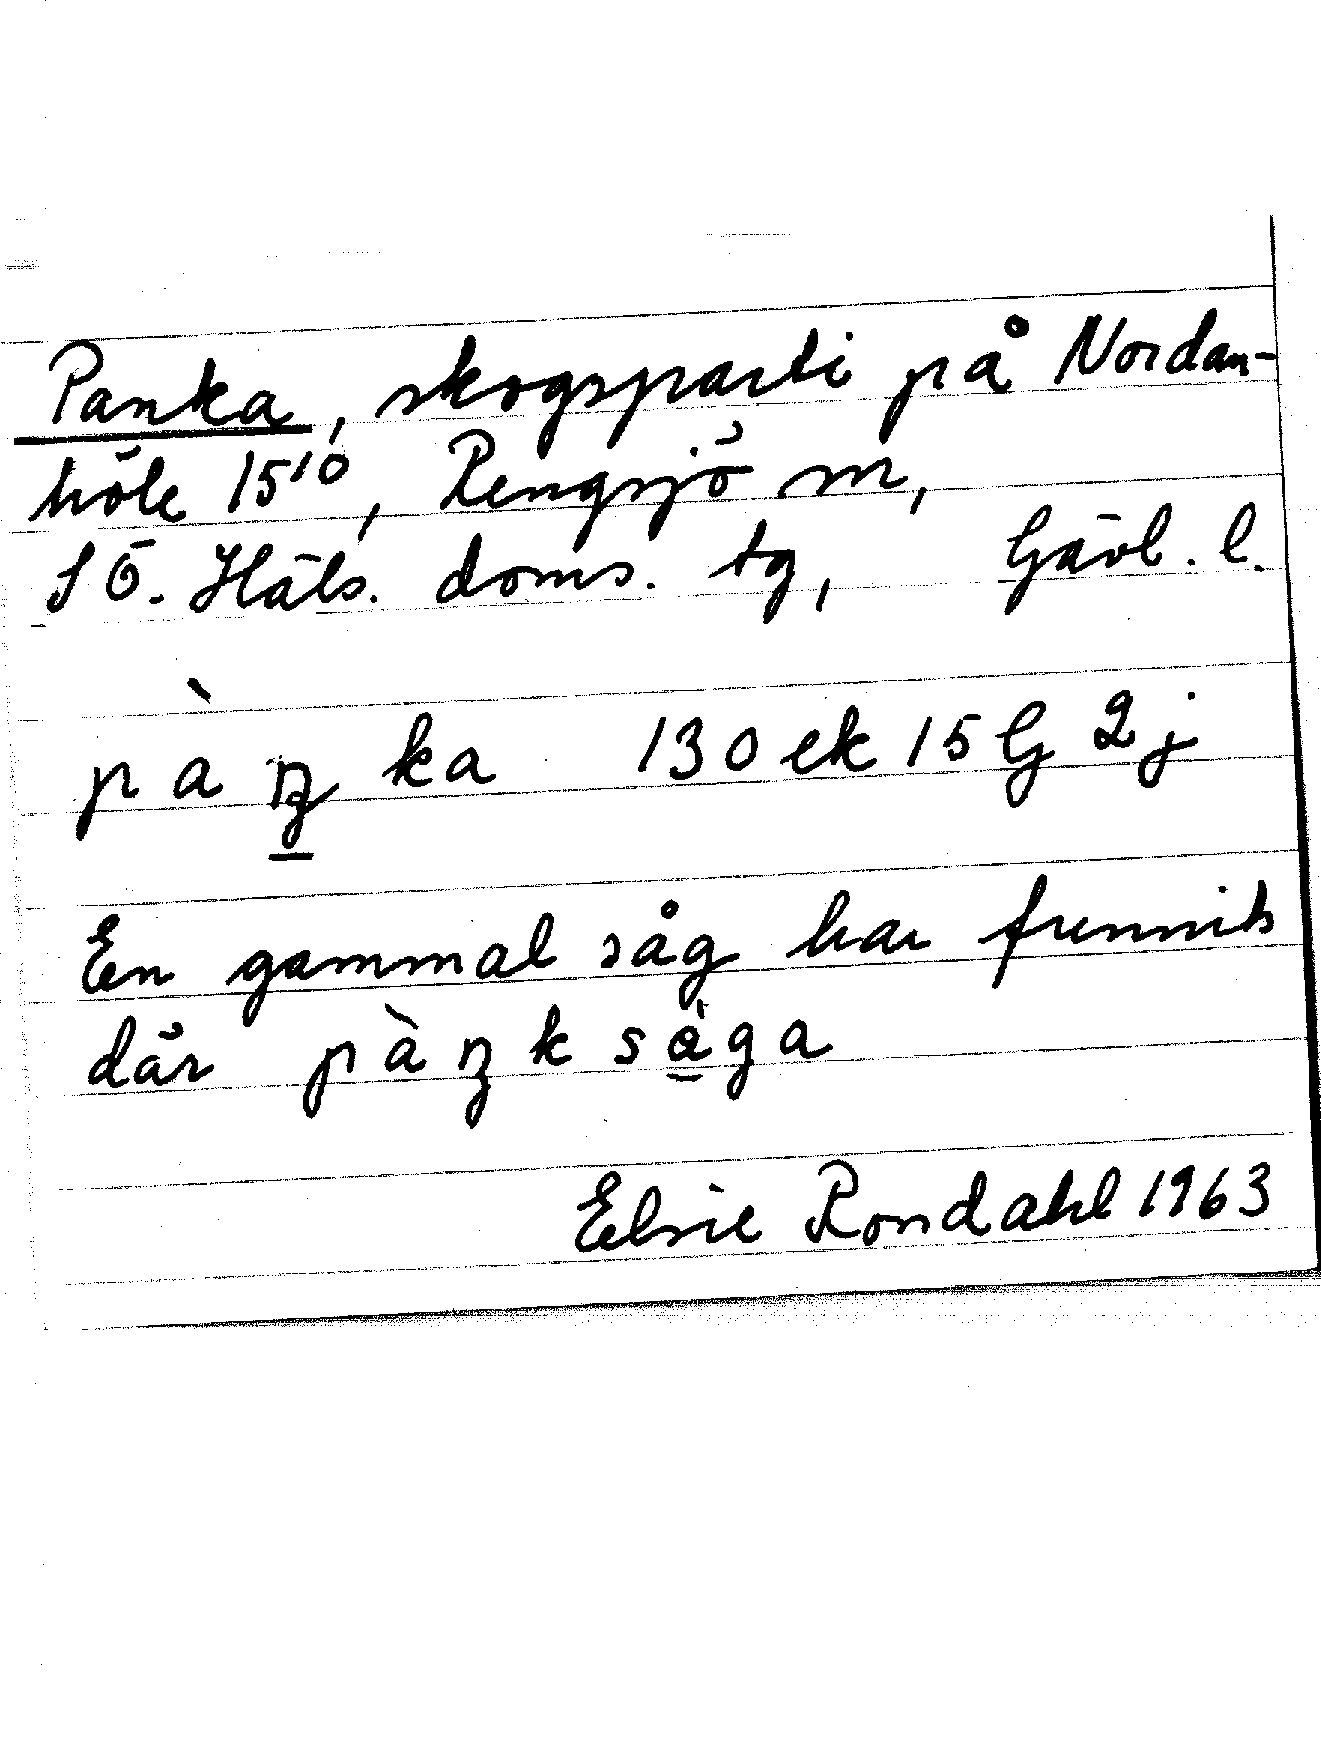 Panka, skogsparti på Nordan-
höle 15¹⁰, Rengsjö sn,
SÖ. Häls. doms. tg, Gävl. l.
pàŋ̱ka 130 ek 15 G 2 j
En gammal såg har funnits
där pàŋkså̱ga
Elsie Rondahl 1963